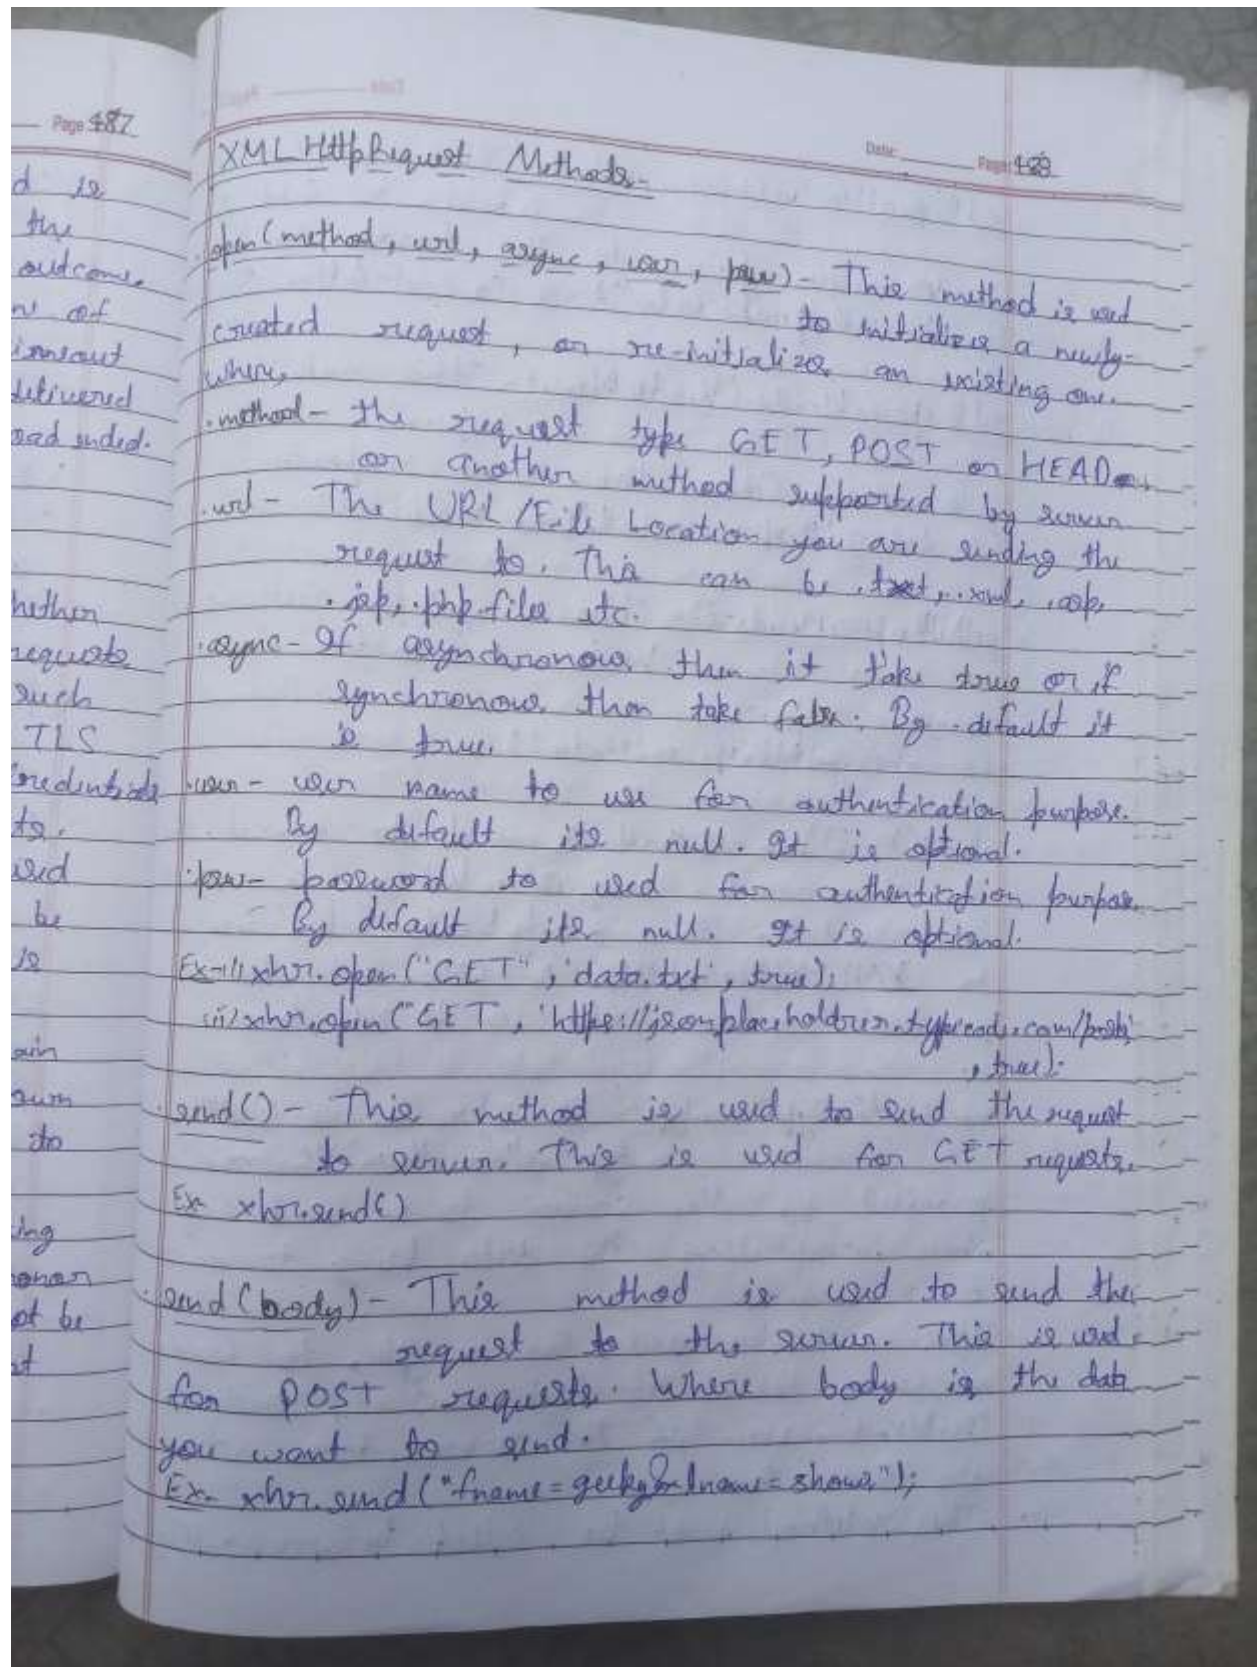 Page 487
d is
the
outcome.
n of
imeout
delivered
oad ended.
hether
requests
such
TLS
credentials
ts.
used
be
is
ain
turn
to
ing
onor
ot be
t
Date: Page: 488
XMLHttpRequest Methods-
open(method, url, async, user, psw) - This method is used
to initialize a newly-
created request, or re-initialize an existing one.
where,
.method - the request type GET, POST or HEAD
or another method supported by server
.url - The URL/File Location you are sending the
request to. This can be .txt, .xml, .asp,
.jsp, .php file etc.
.async - If asynchronous then it take true or if
synchronous then take false. By default it
is true.
.user - user name to use for authentication purpose.
By default its null. It is optional.
.psw - password to used for authentication purpose.
By default its null. It is optional.
Ex- i) xhr.open("GET", 'data.txt', true);
ii) xhr.open("GET, 'https://jsonplaceholder.typicode.com/posts'
, true);
send() - This method is used to send the request
to server. This is used for GET requests.
Ex- xhr.send()
.send(body) - This method is used to send the
request to the server. This is used
for POST requests. Where body is the data
you want to send.
Ex- xhr.send("fname=geeky&lname=shows");